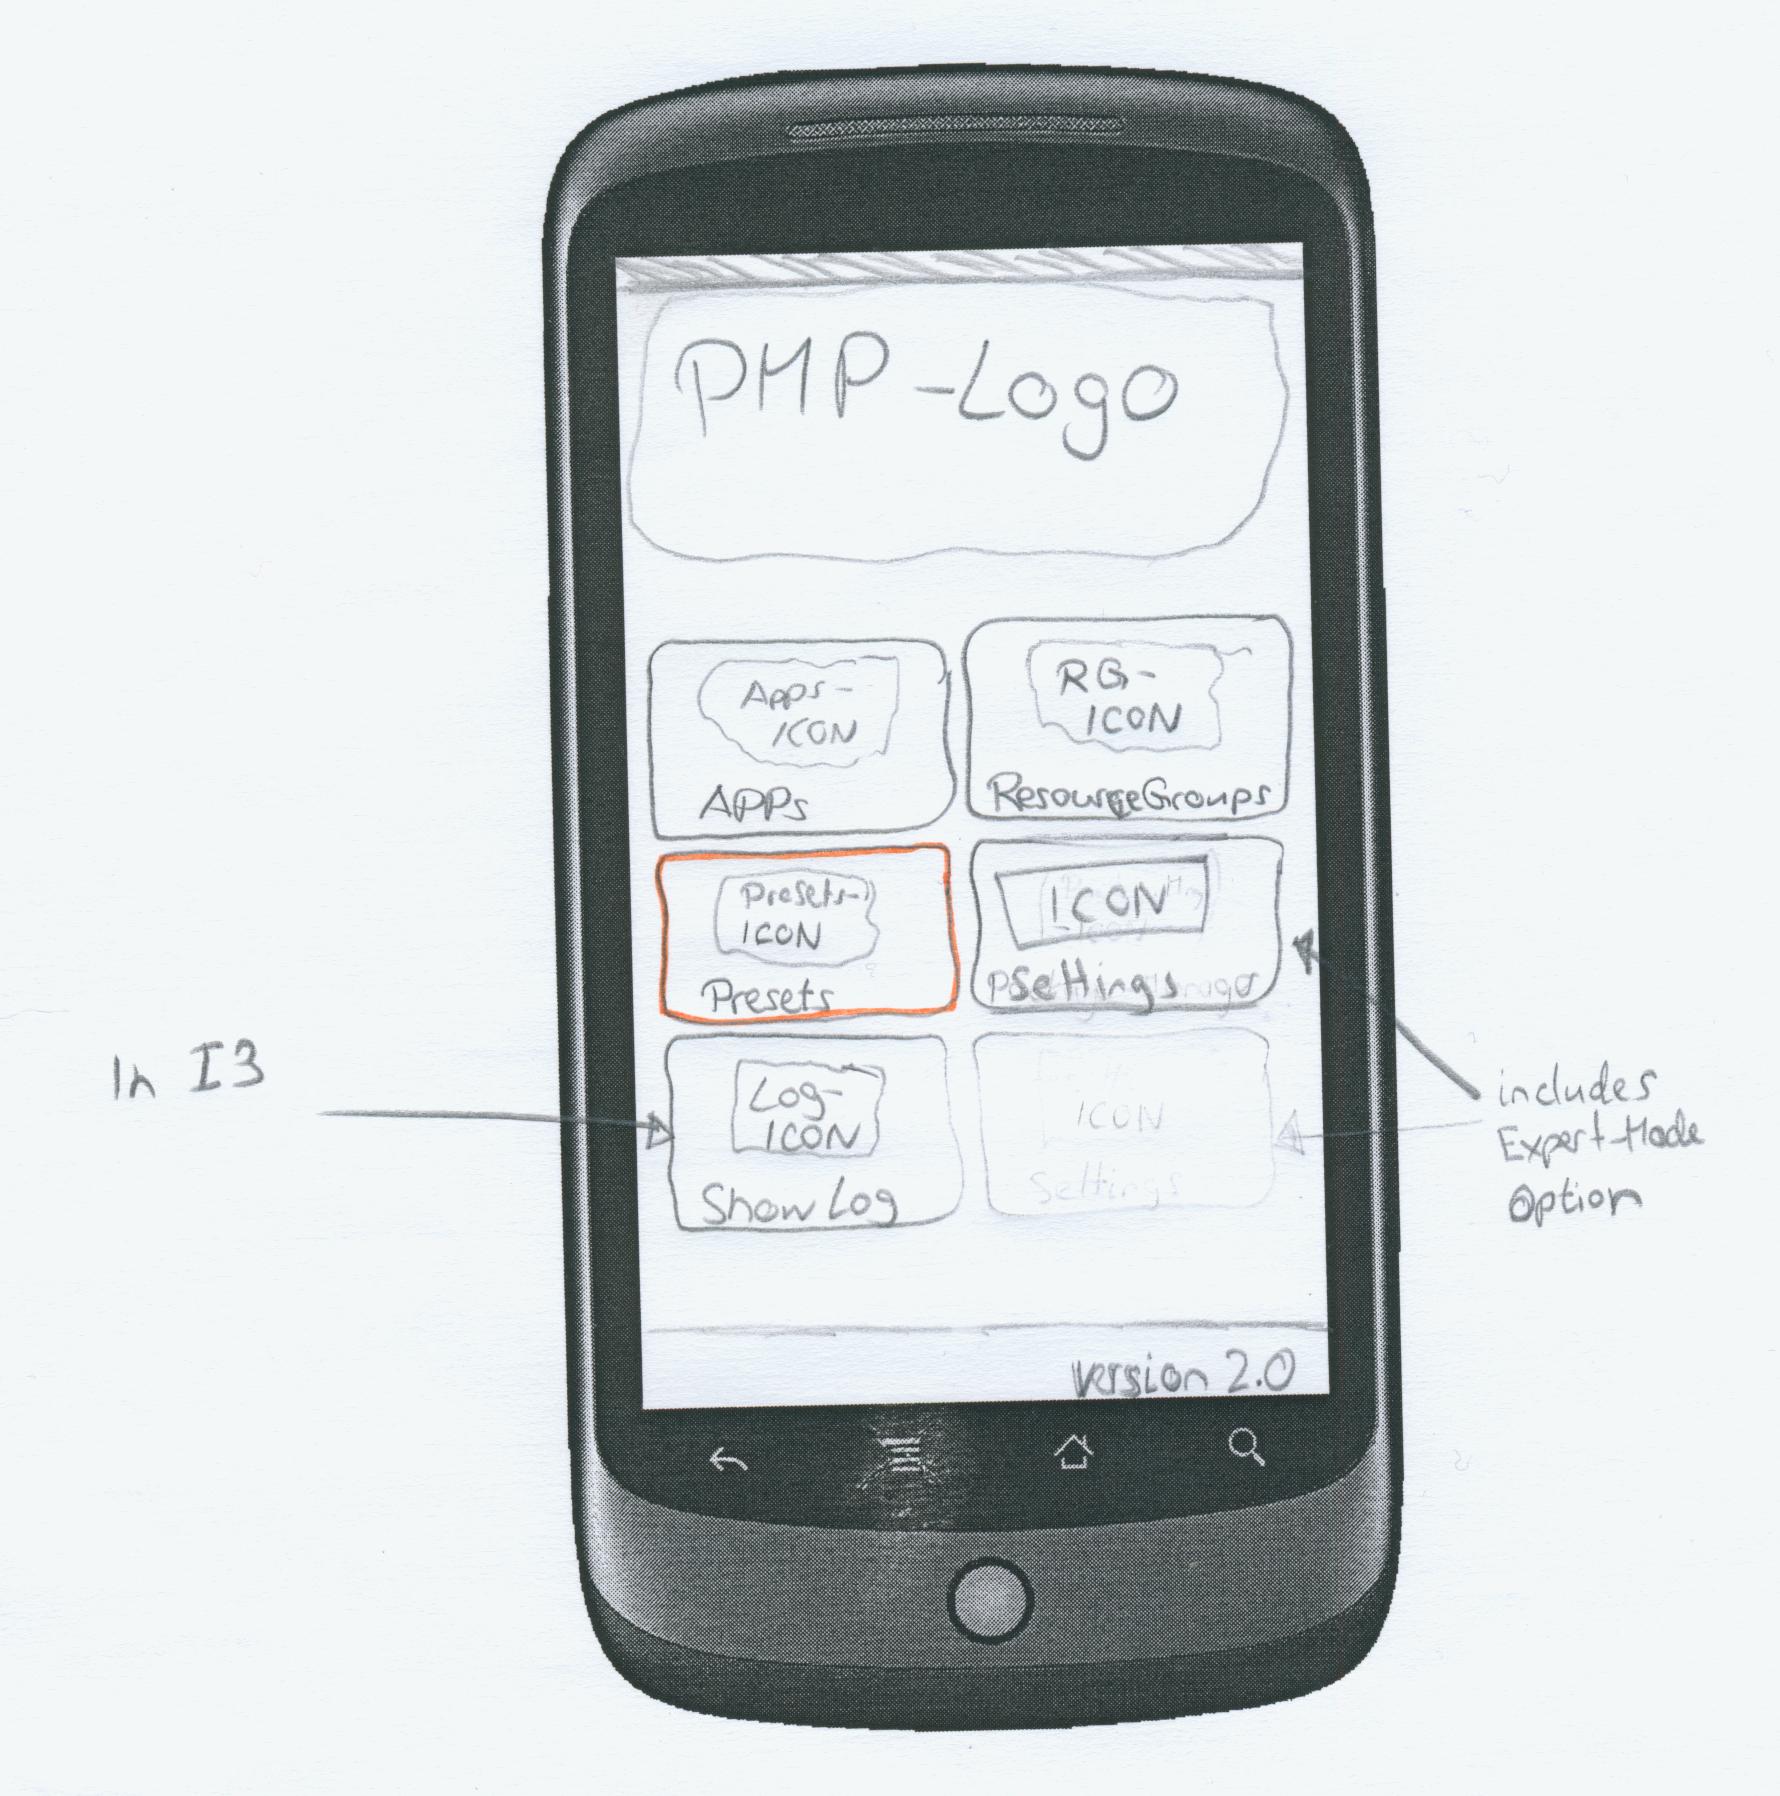 PMP-Logo
Apps-
ICON
APPs
RG-
ICON
ResourceGroups
Presets-
ICON
Presets
ICON
Settings
Log-
ICON
Show Log
ICON
Settings
In I3
includes
Expert-Mode
Option
version 2.0